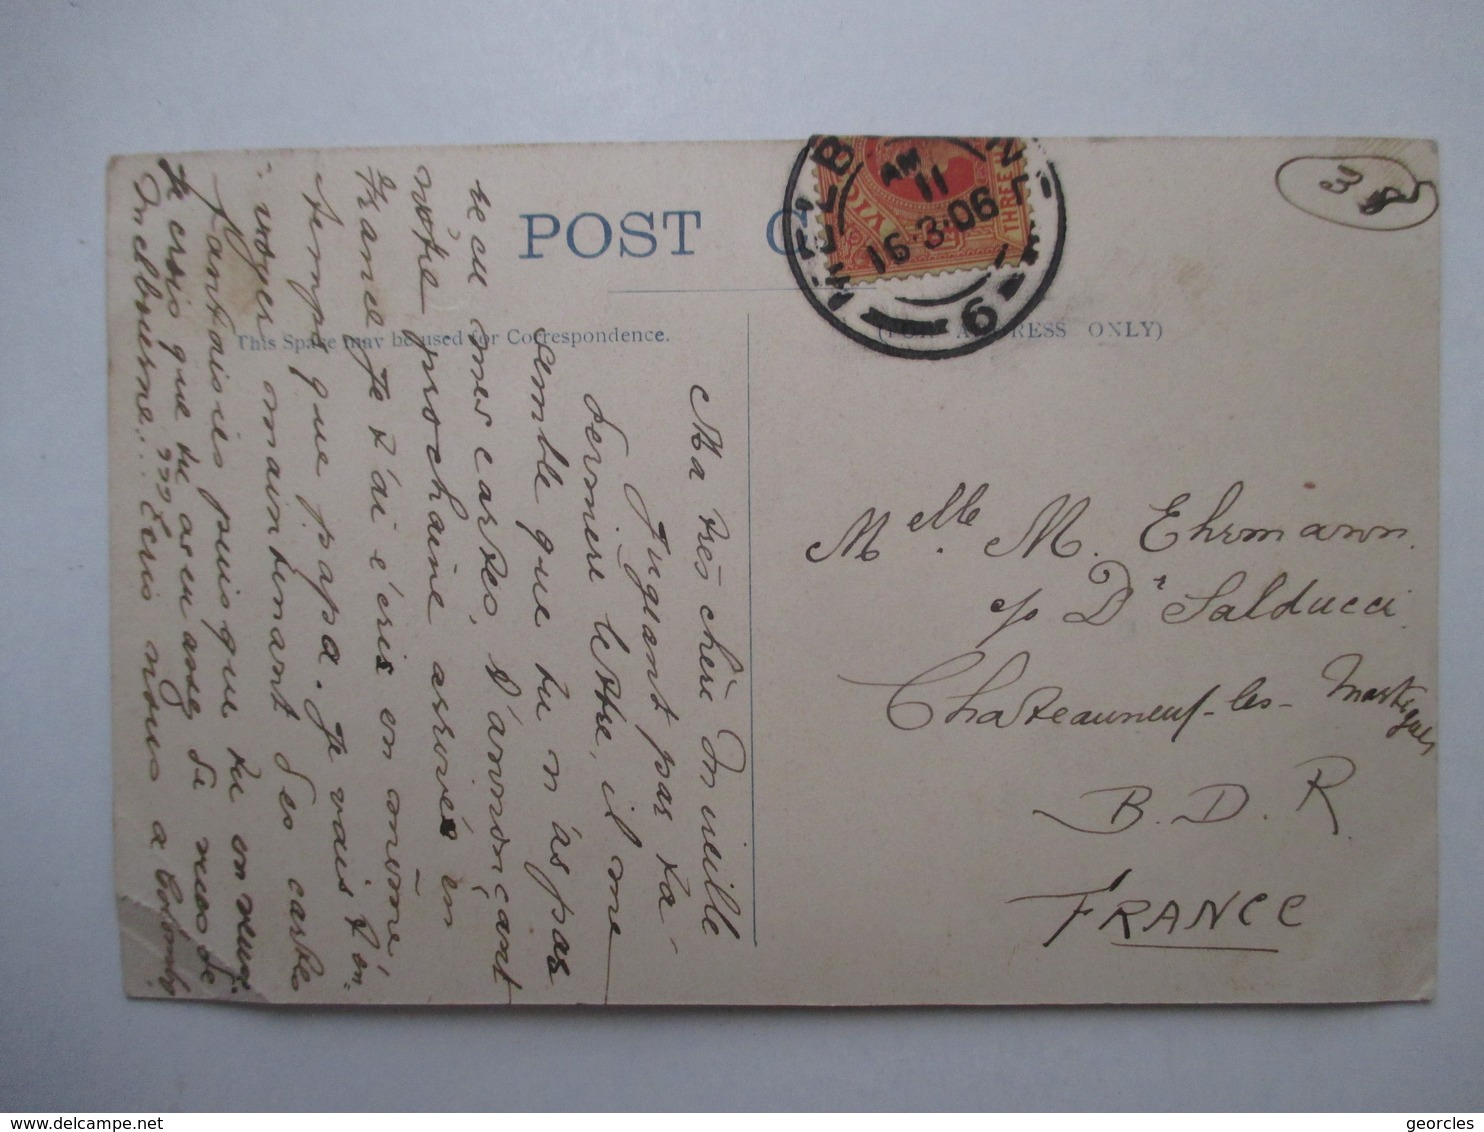 POST C
This Space may be used for Correspondence.
(FOR ADDRESS ONLY)
MELB
AM
11
16·3·06
6
THREE
38
Ma très chère Mireille
Jugeant par ta
dernière lettre, il me
semble que tu n'as pas
reçu mes cartes, t'annonçant
nôtre prochaine arrivée en
France. Je t'ai écris en même
temps que papa. Je vais t'en
voyer maintenant des cartes
fantaisies puisque tu
Je crois que tu as eu assez de vues de
Melbourne... ??? Ecris nous a Colombo
Melle. M. Ehrmann.
c/o Dr Salducci
Chateauneuf-les-Martegues
B. D. R.
FRANCE
georcles
delcampe.net